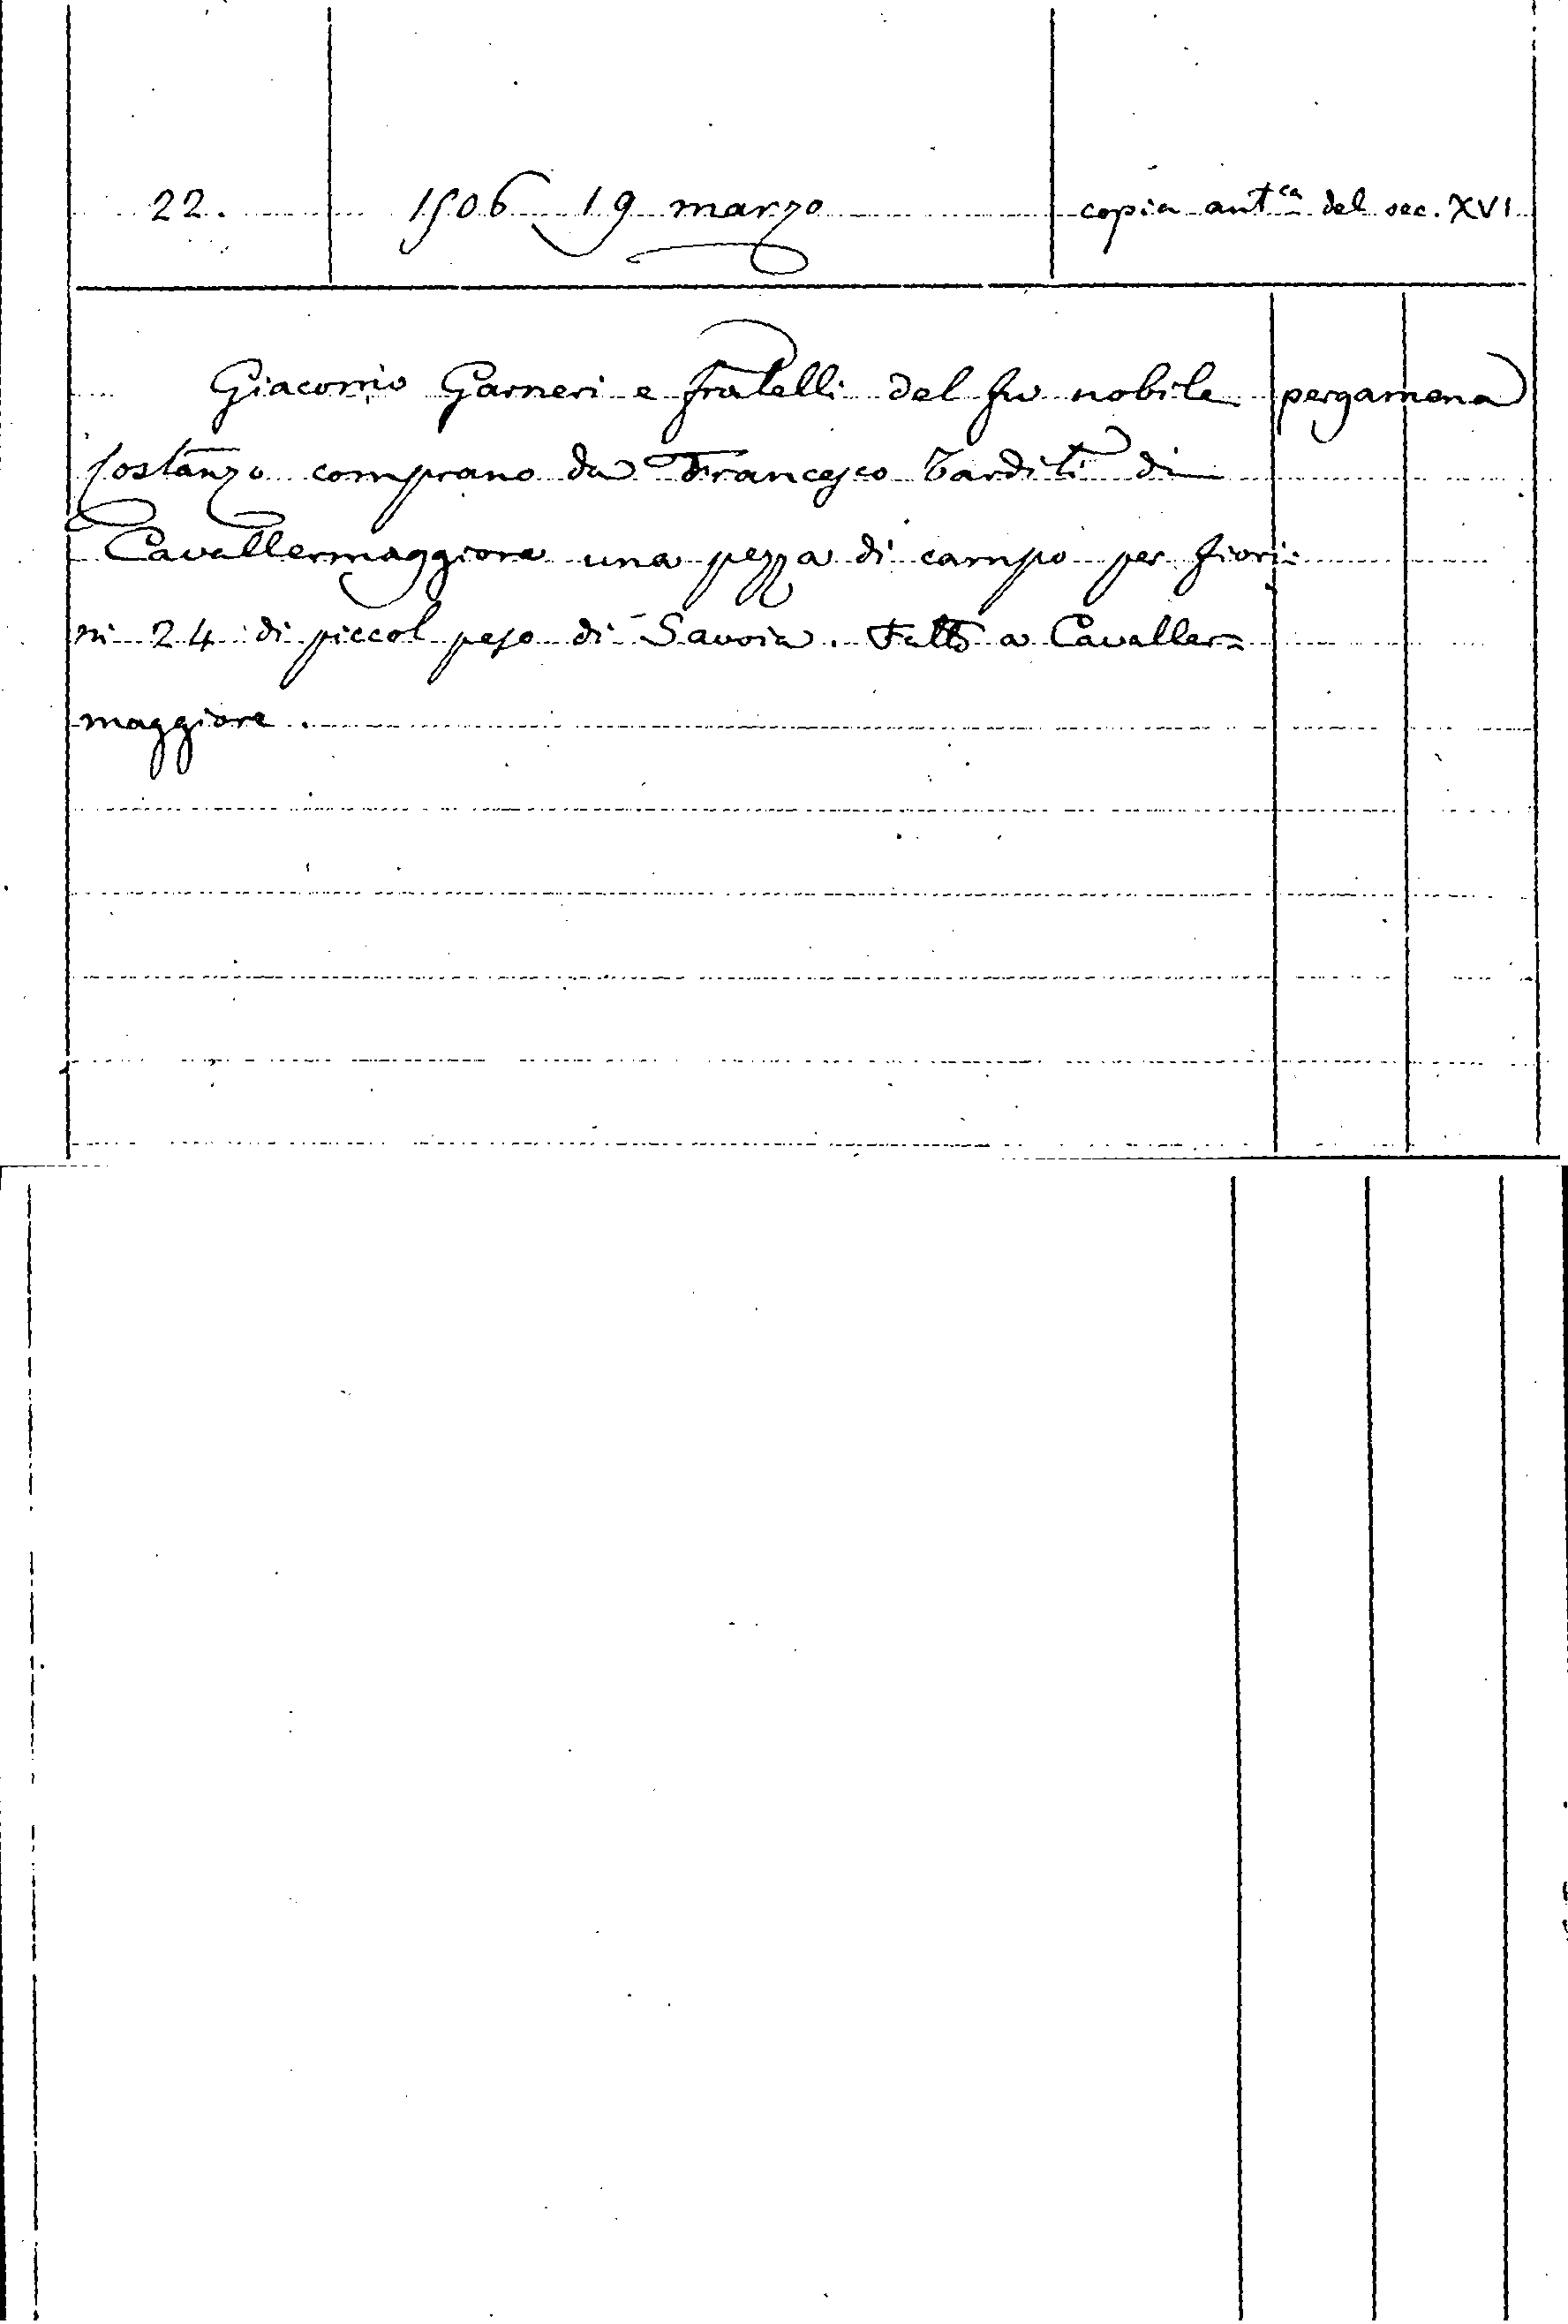 22. 1506 19 marzo copia antca del sec. XVI
Giacomo Garneri e fratelli del fu nobile pergamena
Costanzo comprano da Francesco Tarditi di
Cavallermaggiore una pezza di campo per fiori=
ni 24 di piccol peso di Savoia. Fatto a Cavaller=
maggiore.